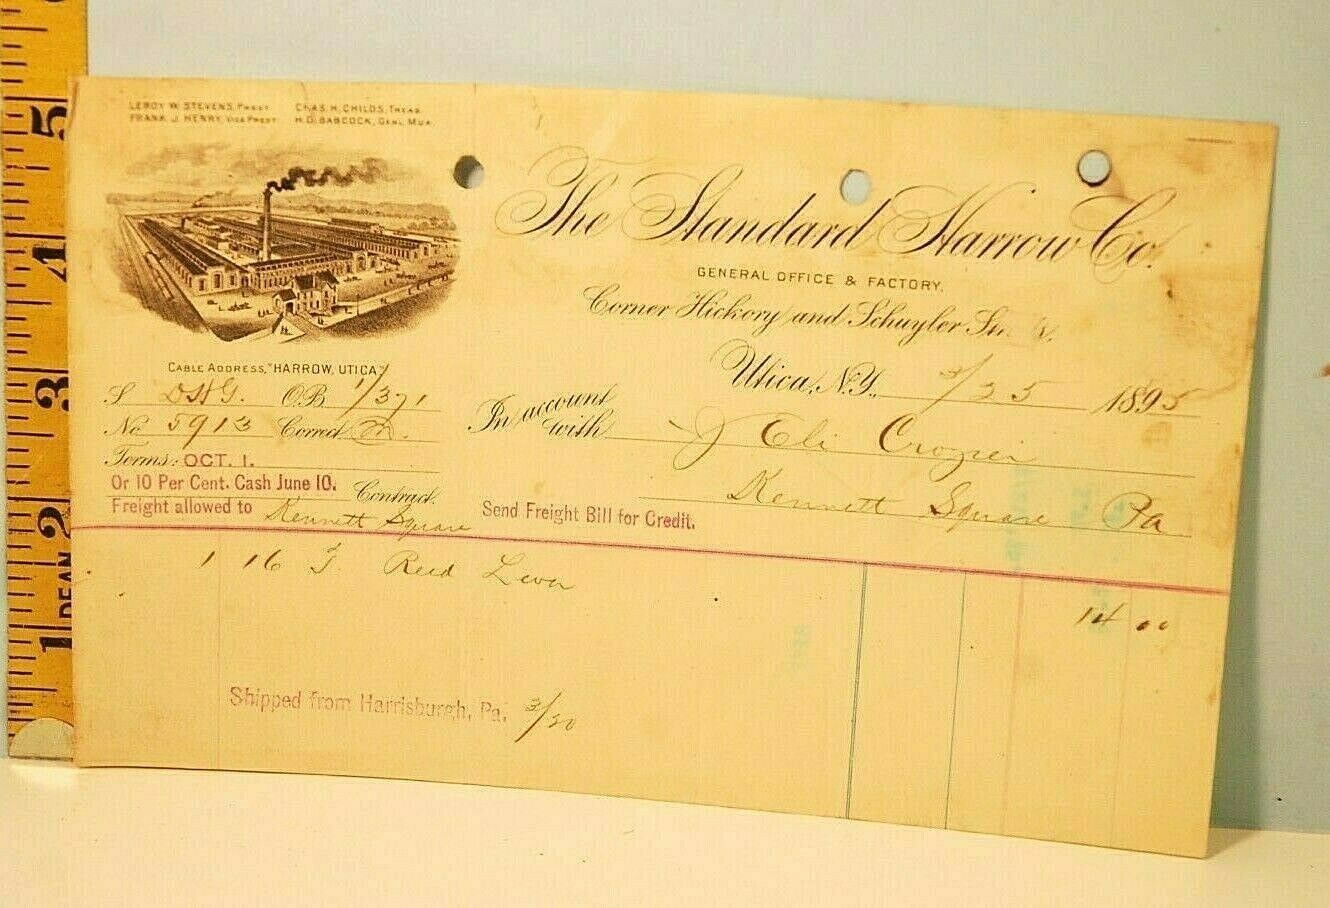 LEROY W. STEVENS, PREST. CHAS. H. CHILDS, TREAS.
FRANK J. HENRY, VICE PREST. H. D. BABCOCK, GENL. MGR.
The Standard Harrow Co.
GENERAL OFFICE & FACTORY,
Corner Hickory and Schuyler
Utica, N.Y., 3/25 1895
CABLE ADDRESS, "HARROW, UTICA"
S O.B. 1/371
No. 5913 Correct
Terms: OCT. 1.
Or 10 Per Cent. Cash June 10. Contract.
Freight allowed to Kennett Square
In account with J Eli Crozier
Kennett Square Pa
Send Freight Bill for Credit.
1 16 T. Reed Lever 14 00
Shipped from Harrisburgh, Pa. 3/20
1 2 3 4 5
DEAN